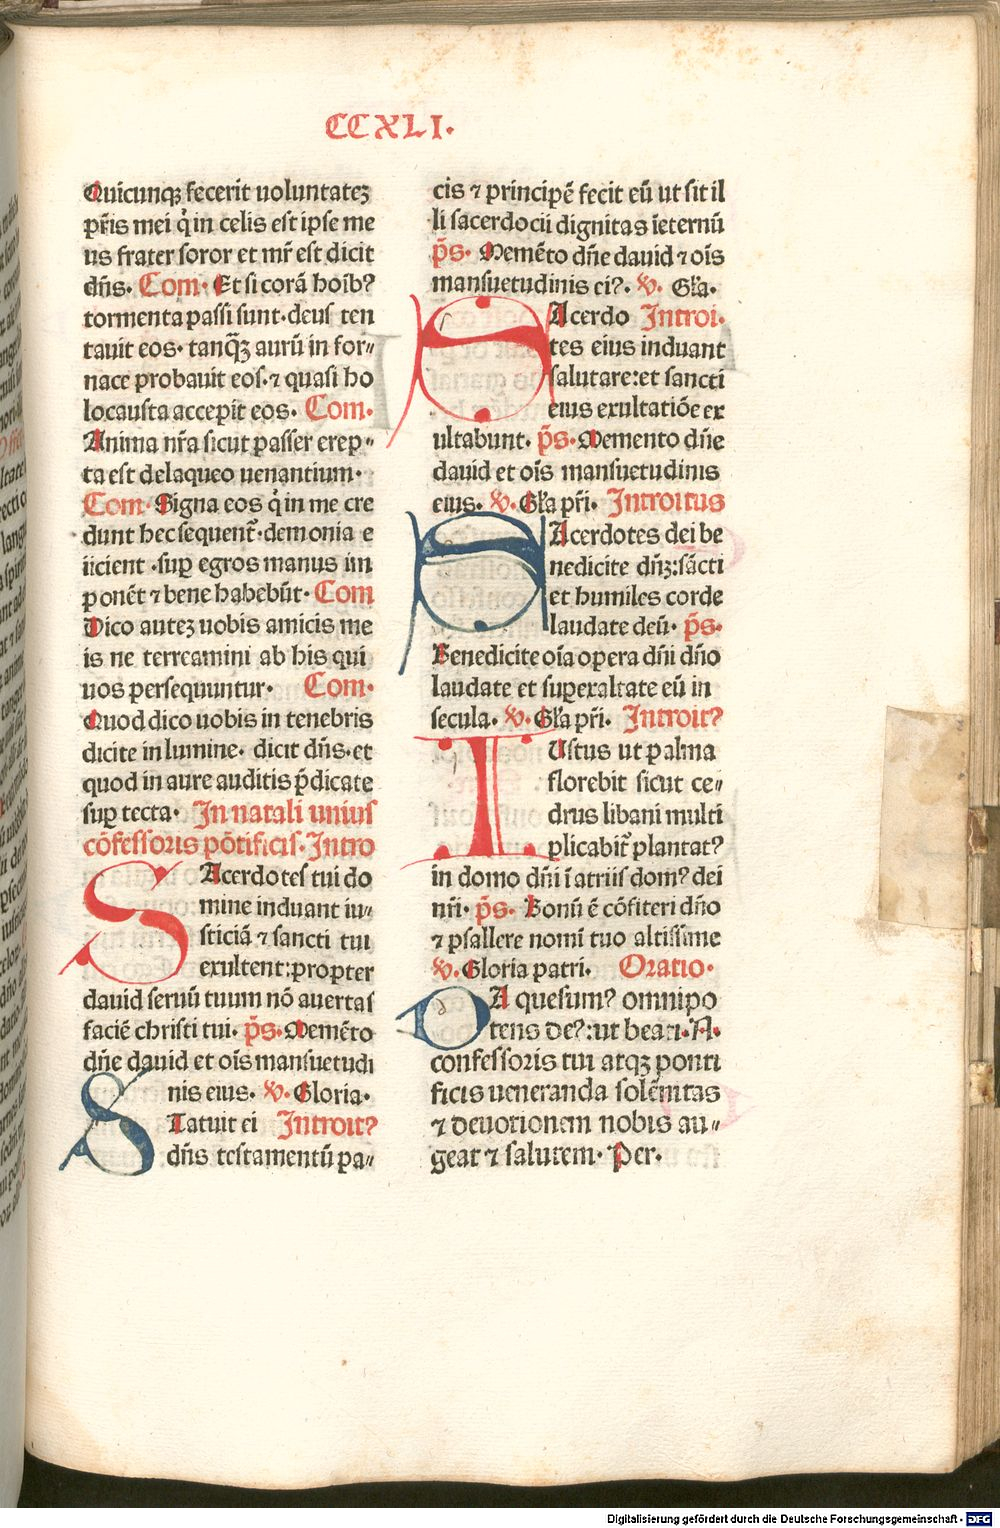 CCXLI.
Quicunqꝫ fecerit uoluntateꝫ
pr̄is mei q̇ in celis est ipse me
us frater soror et mr̄ est dicit
dn̄s. Com. Et si corā hoīb?
tormenta passi sunt. deus ten
tauit eos. tanq̄ꝫ aurū in for〃
nace probauit eos. ⁊ quasi ho
locausta accepit eos. Com.
Anima nr̄a sicut passer erep〃
ta est delaqueo uenantium.
Com. Signa eos q̇ in me cre
dunt hec sequent̄. demonia e
iicient. sup̲ egros manus im
ponēt ⁊ bene habebūt. Com
Dico auteꝫ uobis amicis me
is ne terreamini ab his qui
uos persequuntur. Com.
Quod dico uobis in tenebris
dicite in lumine. dicit dn̄s. et
quod in aure auditis p̄dicate
sup̲ tecta. In natali unius
cōfessoris pōtificis. Intro
SAcerdotes tui do
mine induant iu〃
sticiā ⁊ sancti tui
exultent: propter
dauid seruū tuum nō auertas
faciē christi tui. p̄s. Memēto
dn̄e dauid et oīs mansuetudi
nis eius. v. Gloria.
STatuit ei Introit?
dn̄s testamentū pa〃
cis ⁊ principē fecit eū ut sit il
li sacerdocii dignitas īeternū
p̄s. Memēto dn̄e dauid ⁊ oīs
mansuetudinis ei?. v. Gl̄a.
SAcerdo Introi.
tes eius induant
salutare: et sancti
eius exultatiōe ex
ultabunt. p̄s. Memento dn̄e
dauid et oīs mansuetudinis
eius. v. Gl̄a pr̄i. Introitus
SAcerdotes dei be
nedicite dn̄ꝫ: sācti
et humiles corde
laudate deū. p̄s.
Benedicite oīa opera dn̄i dn̄o
laudate et superexaltate eū in
secula. v. Gl̄a pr̄i. Introit?
IUstus ut palma
florebit sicut ce〃
drus libani multi
plicabit̄ plantat?
in domo dn̄i ī atriis dom? dei
nr̄i. p̄s. Bonū ē cōfiteri dn̄o
⁊ psallere nomī tuo altissime
v. Gloria patri. Oratio.
DA quesum? omnipo
tens de?: ut beati. N.
confessoris tui atqꝫ ponti
ficis ueneranda solēnitas
⁊ deuotionem nobis au〃
geat ⁊ salutem. Per.
Digitalisierung gefördert durch die Deutsche Forschungsgemeinschaft - DFG